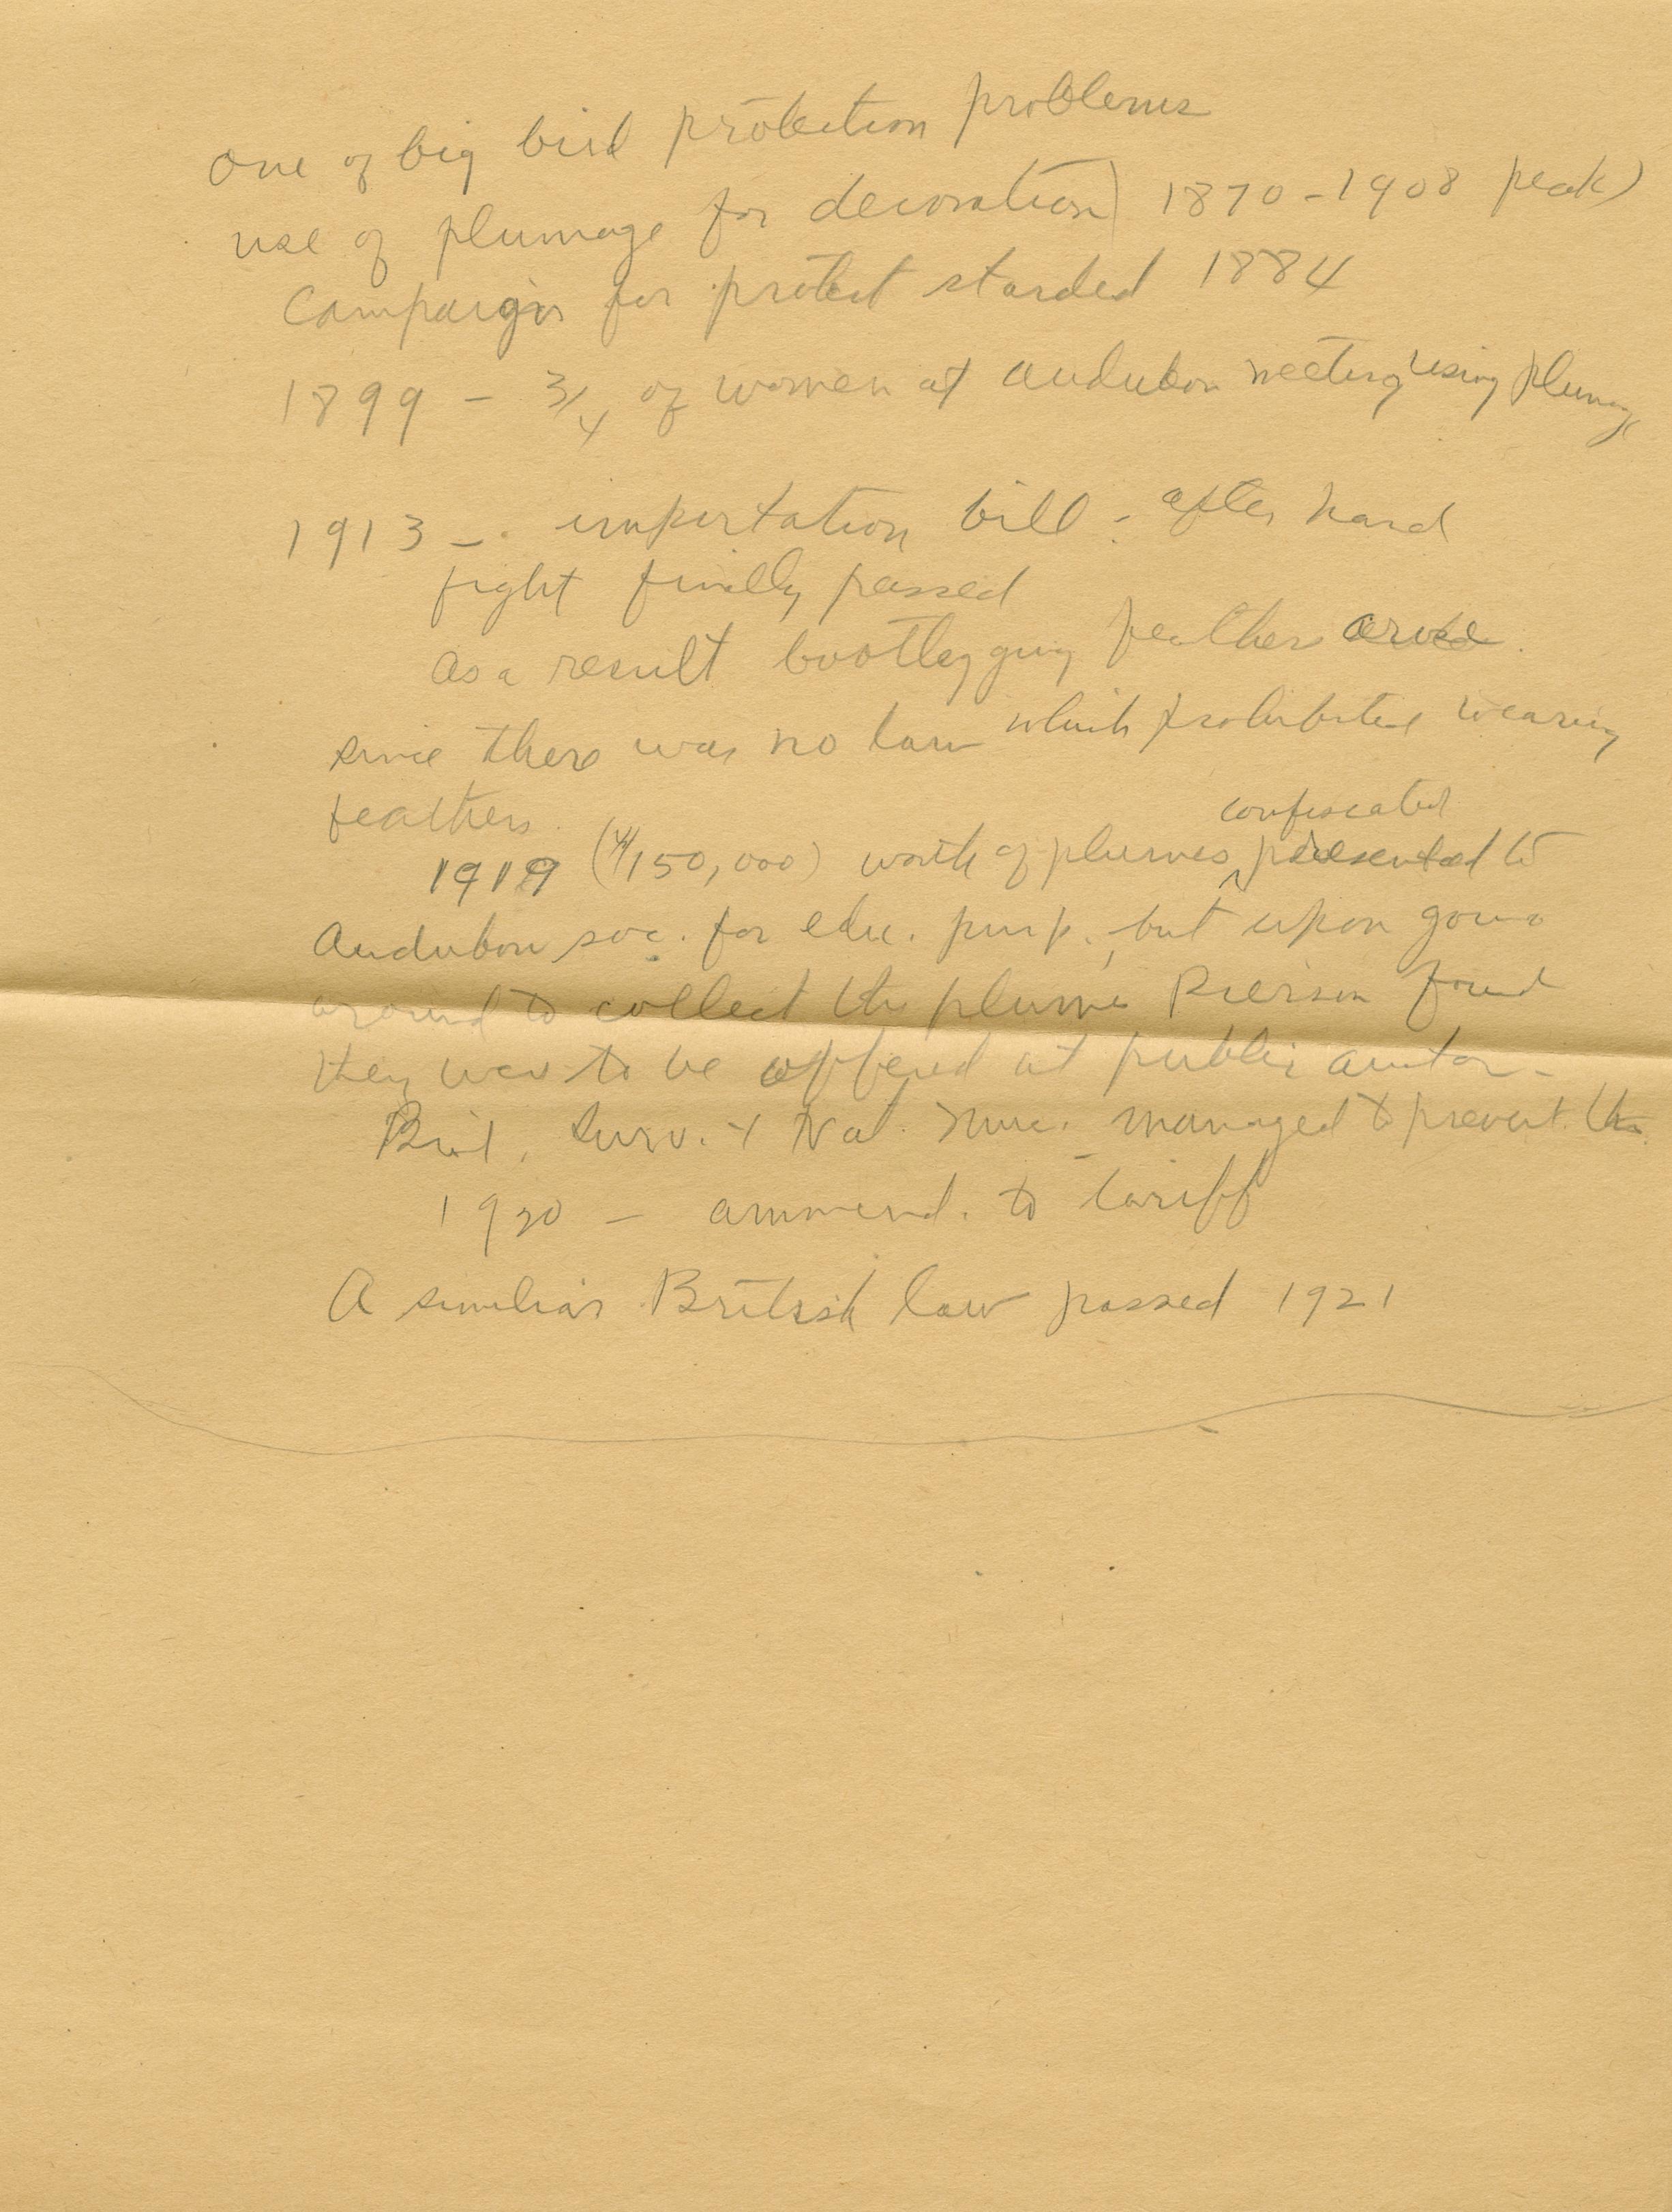 one of big bird protection problems
use of plumage for decoration) 1870-1908 peak)
Campaign for protect started 1884
1899 - 3/4 of women at audubon meeting using plumage
1913 - importation bill - after hard
fight finally passed
as a result bootlegging feathers arose.
since there was no law which prohibited wearing
feathers.
confiscated
1919 ($150,000) worth of plumes ^ presented to
Audubon soc. for edu. purp., but upon going
around to collect the plumes Pierson found
they were to be offered at public
Biol. Surv. + Nat. managed to prevent this.
1920 - ammend. to tariff
A similiar British law passed 1921